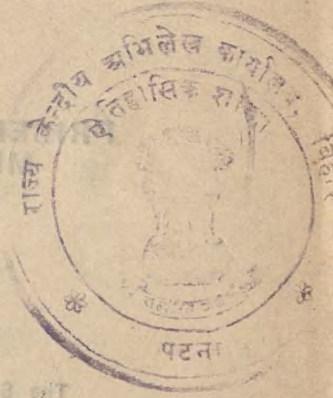 राज्य केन्द्रीय अभिलेख कार्यालय, बिहार
ऐतिहासिक शाखा
पटना
The